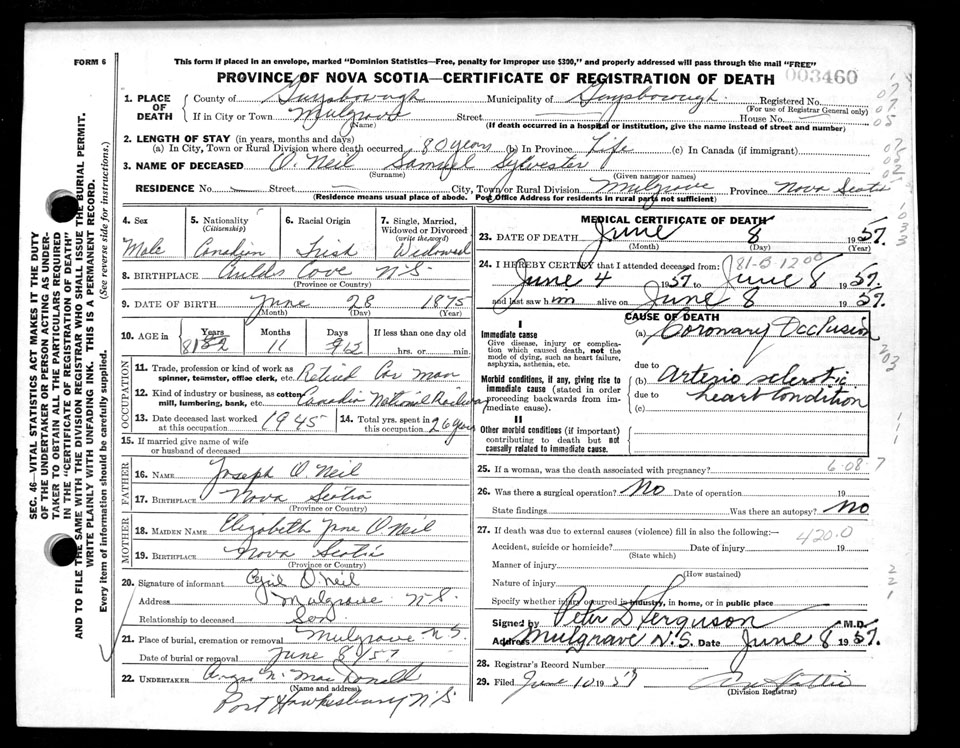 FORM 6
This form if placed in an envelope, marked "Dominion Statistics—Free, penalty for Improper use $300," and properly addressed will pass through the mail "FREE"
PROVINCE OF NOVA SCOTIA—CERTIFICATE OF REGISTRATION OF DEATH
003460
1. PLACE OF DEATH County of Guysborough Municipality of Guysborough Registered No.
(For use of Registrar General only)
If in City or Town Mulgrave Street House No.
(Name) (If death occurred in a hospital or institution, give the name instead of street and number)
2. LENGTH OF STAY (in years, months and days)
(a) In City, Town or Rural Division where death occurred 80 years (b) In Province Life (c) In Canada (if immigrant)
3. NAME OF DECEASED O'Neil Samuel Sylvester
(Surname) (Given name or names)
RESIDENCE No. Street City, Town or Rural Division Mulgrave Province Nova Scotia
(Residence means usual place of abode. Post Office Address for residents in rural parts not sufficient)
4. Sex 5. Nationality (Citizenship) 6. Racial Origin 7. Single, Married, Widowed or Divorced (write the word)
Male Canadian Irish Widowed
8. BIRTHPLACE Aulds Cove N.S.
(Province or Country)
9. DATE OF BIRTH June 28 1875
(Month) (Day) (Year)
10. AGE in Years Months Days If less than one day old
81 11 hrs. or min.
OCCUPATION
11. Trade, profession or kind of work as spinner, teamster, office clerk, etc. Retired Car man
12. Kind of industry or business, as cotten mill, lumbering, bank, etc. Canadian National Railway
13. Date deceased last worked at this occupation 1945 14. Total yrs. spent in this occupation 26 years
15. If married give name of wife or husband of deceased
FATHER
16. NAME Joseph O'Neil
17. BIRTHPLACE Nova Scotia
(Province or Country)
MOTHER
18. MAIDEN NAME Elizabeth Jane O'Neil
19. BIRTHPLACE Nova Scotia
(Province or Country)
20. Signature of informant Cyril O'Neil
Address Mulgrave N.S.
Relationship to deceased Son
21. Place of burial, cremation or removal Mulgrave N.S.
Date of burial or removal June 8/57
22. UNDERTAKER Angus N. MacDonald
(Name and address)
Port Hawkesbury N.S
MEDICAL CERTIFICATE OF DEATH
23. DATE OF DEATH June 8 1957.
(Month) (Day) (Year)
24. I HEREBY CERTIFY that I attended deceased from:
81-B 1200
June 4 1957 to June 8 1957.
and last saw him alive on June 8 1957.
CAUSE OF DEATH
I
Immediate cause
Give disease, injury or complication which caused death, not the mode of dying, such as heart failure, asphyxia, asthenia, etc.
(a) Coronary Occlusion
due to
Morbid conditions, if any, giving rise to immediate cause (stated in order proceeding backwards from immediate cause).
(b) Arterio sclerotic
due to heart condition
(c)
II
Other morbid conditions (if important) contributing to death but not causally related to immediate cause.
25. If a woman, was the death associated with pregnancy?
6-08-7
26. Was there a surgical operation? No Date of operation 19
State findings Was there an autopsy? No
27. If death was due to external causes (violence) fill in also the following:—
420.0
Accident, suicide or homicide? Date of injury 19
(State which)
Manner of injury
(How sustained)
Nature of injury
Specify whether injury occurred in industry, in home, or in public place
Signed by Peter D Ferguson M.D.
Address Mulgrave N.S. Date June 8 1957.
28. Registrar's Record Number
29. Filed June 10 1957
(Division Registrar)
SEC. 46—VITAL STATISTICS ACT MAKES IT THE DUTY
OF THE UNDERTAKER OR PERSON ACTING AS UNDER-
TAKER TO OBTAIN ALL THE PARTICULARS REQUIRED
IN THE "CERTIFICATE OF REGISTRATION OF DEATH"
AND TO FILE THE SAME WITH THE DIVISION REGISTRAR WHO SHALL ISSUE THE BURIAL PERMIT.
WRITE PLAINLY WITH UNFADING INK. THIS IS A PERMANENT RECORD.
Every item of information should be carefully supplied. (See reverse side for instructions.)